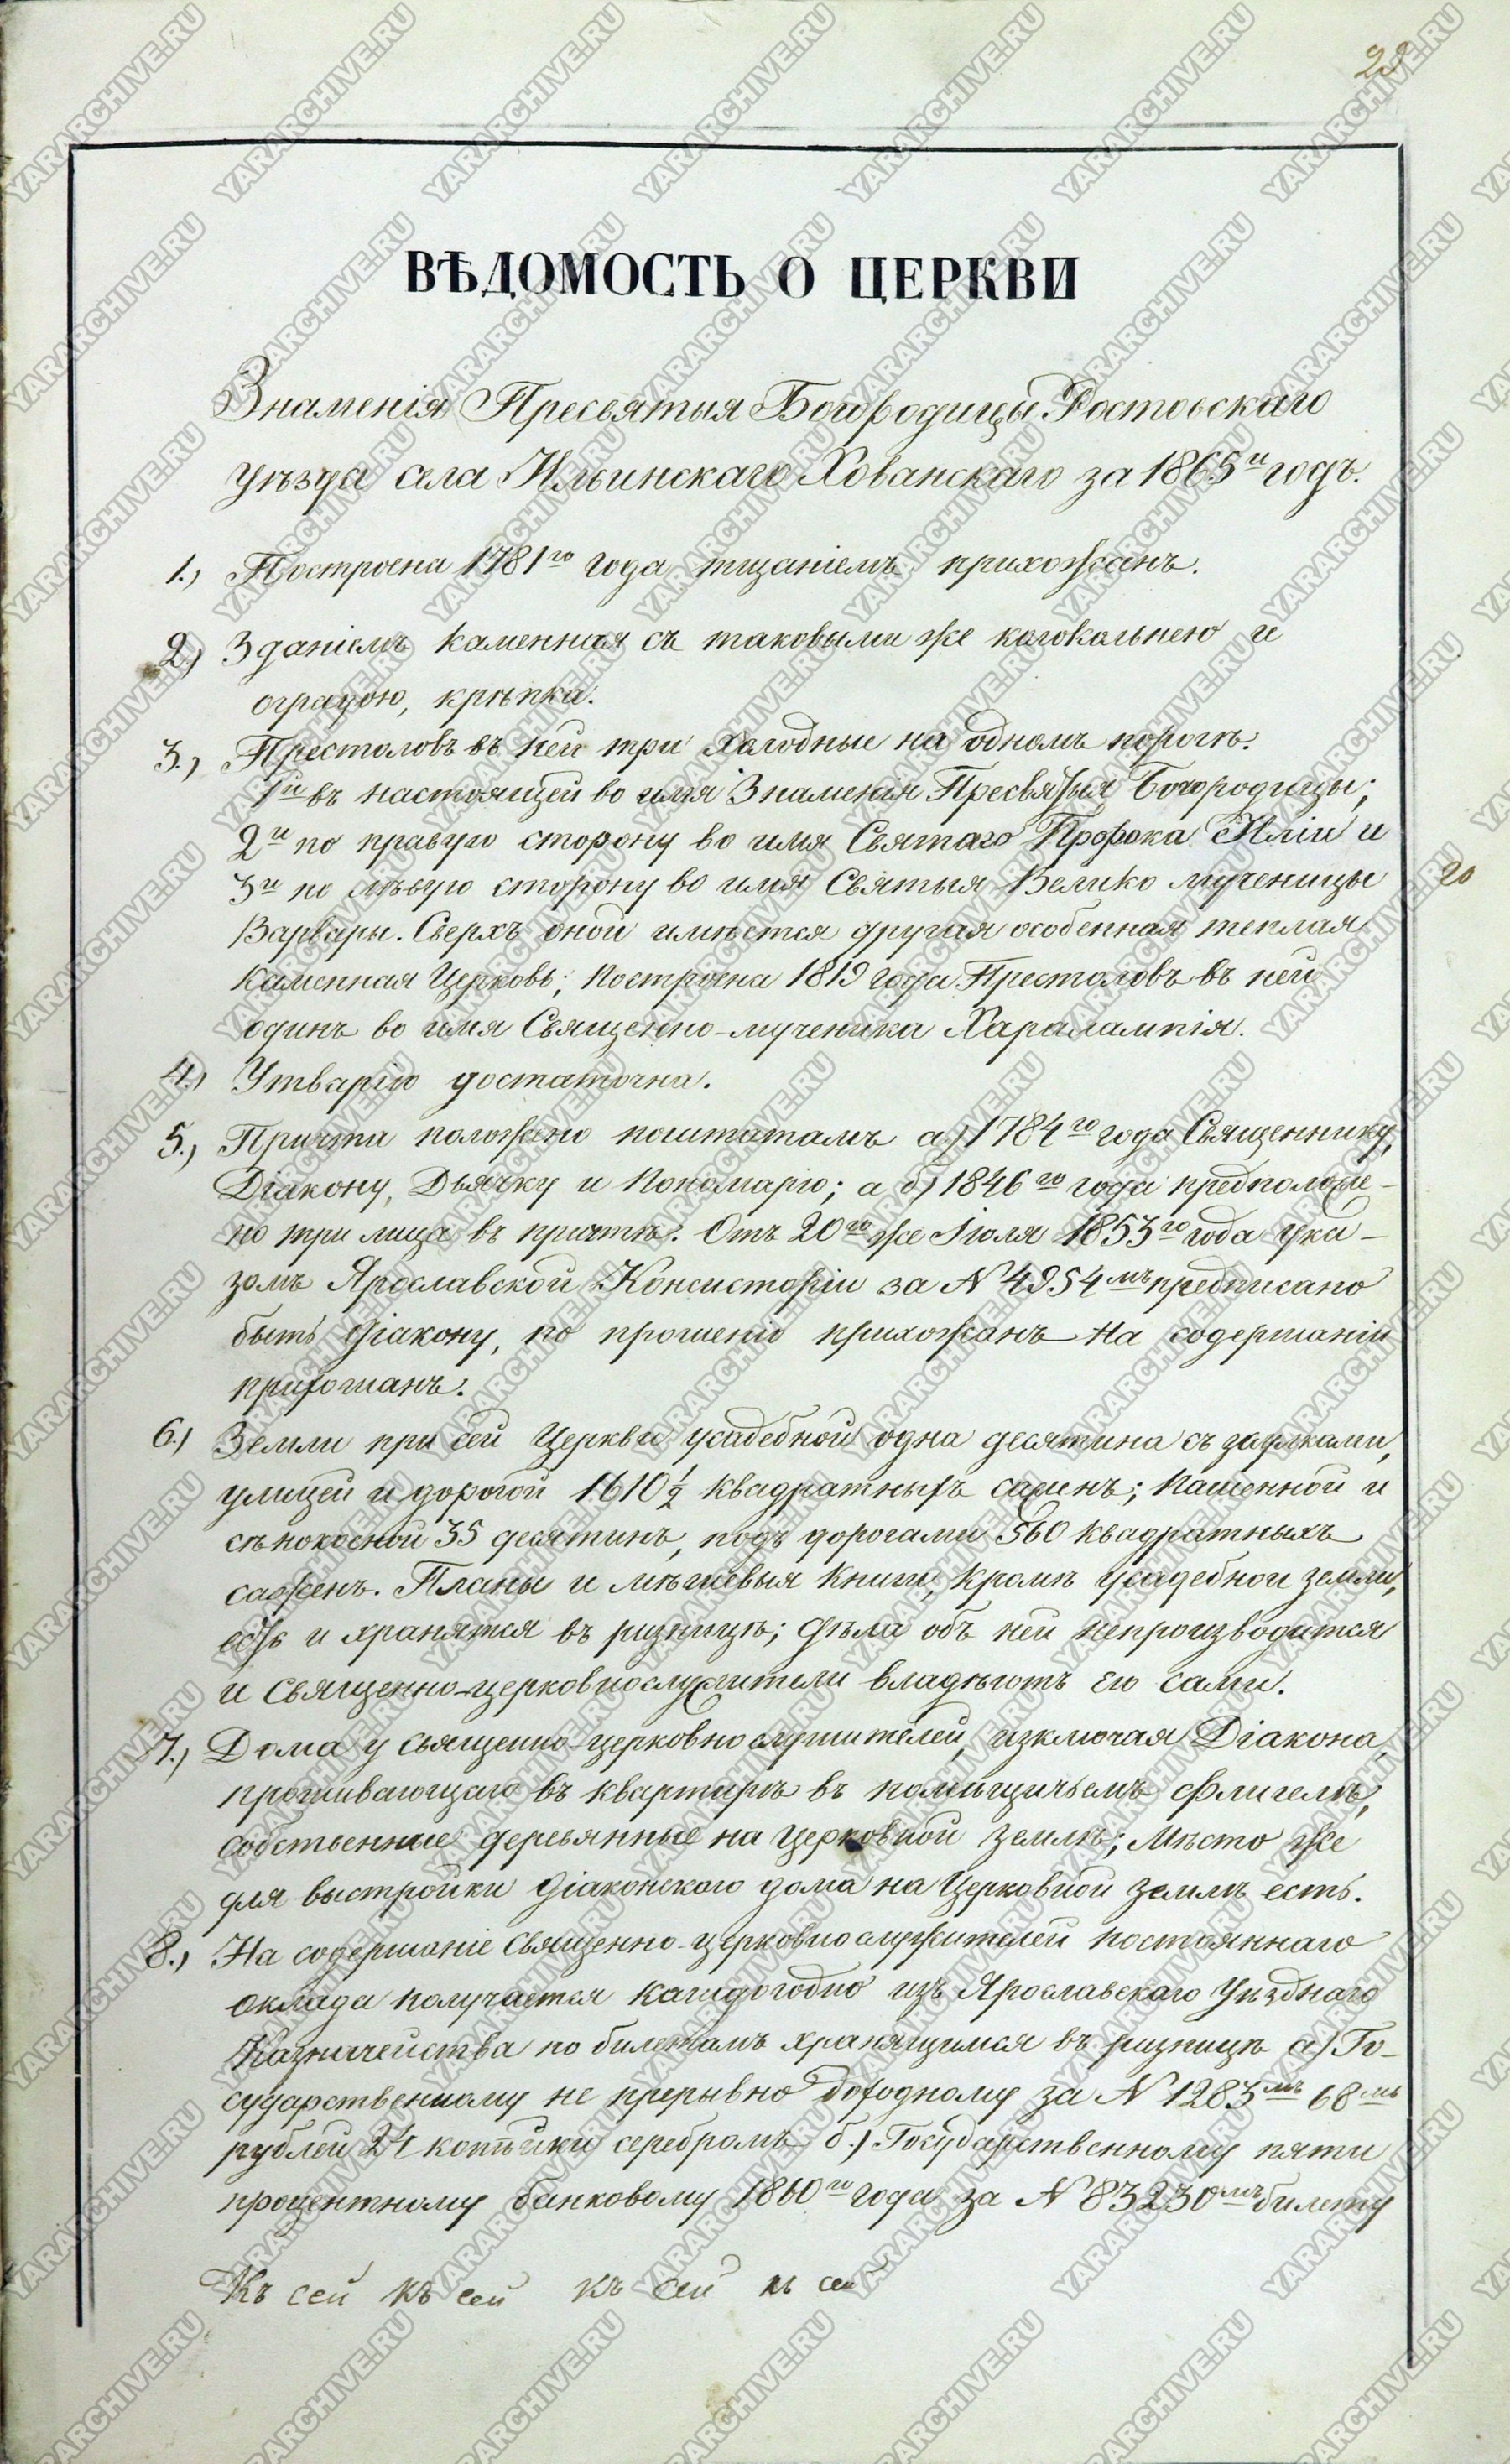 ВѢДОМОСТЬ О ЦЕРКВИ
Знаменія Пресвятыя Богородицы Ростовскаго
уѣзда села Ильинскаго Хованскаго за 1865й годъ.
1.) Построена 1781го года тщаніемъ прихожанъ.
2.) Зданіемъ каменная съ таковыми же колокольнею и
оградою, крѣпка.
3.) Престоловъ въ ней три холодные на одномъ порогѣ.
1й въ настоящей во имя Знаменія Пресвятыя Богородицы;
2й по правую сторону во имя Святаго Пророка Иліи и
3й по лѣвую сторону во имя Святыя Велико мученицы
Варвары. Сверхъ оной имѣется другая особенная теплая
каменная Церковь; построена 1819 года Престоловъ въ ней
одинъ во имя Священно-мученика Харалампія.
4.) Утварію достаточна.
5.) Причта положено поштатамъ а.) 1784го года Священнику,
Діакону, Дьячку и Пономарю; а б) 1846го года предположе-
но три лица въ причтѣ. Отъ 20го же Іюля 1853го года ука-
зомъ Ярославской Консисторіи за N 4954мъ предписано
быть діакону, по прошенію прихожанъ на содержаніи
прихожанъ.
6.) Земли при сей Церкви усадебной одна десятина съ
улицей и дорогой 1610 1/2 квадратныхъ сажень; пашенной и
сѣнокосной 35 десятинъ, подъ дорогами 560 квадратныхъ
сажень. Планы и межевыя книги, кромѣ усадебной земли,
есть и хранятся въ ризницѣ; дѣла объ ней непроизводится
и священно-церковнослужители владѣютъ ею сами.
7.) Дома у священно-церковнослужителей, изключая Діакона,
проживающаго въ квартирѣ въ помѣщичьемъ флигелѣ,
собственные деревянные на церковной землѣ; мѣсто же
для выстройки діаконскаго дома на Церковной землѣ есть.
8.) На содержаніе священно-церковнослужителей постояннаго
оклада получается каждогодно изъ Ярославскаго Уѣзднаго
Казначейства по билетамъ хранящимся въ ризницѣ а) Го-
сударственному не прерывно доходному за N 1283мъ 68мь
рублей 24 копѣйки серебромъ б.) Государственному пяти
процентному банковому 1860го года за N 83230мъ билету
Къ сей къ сей къ сей къ сей
YARARCHIVE.RU